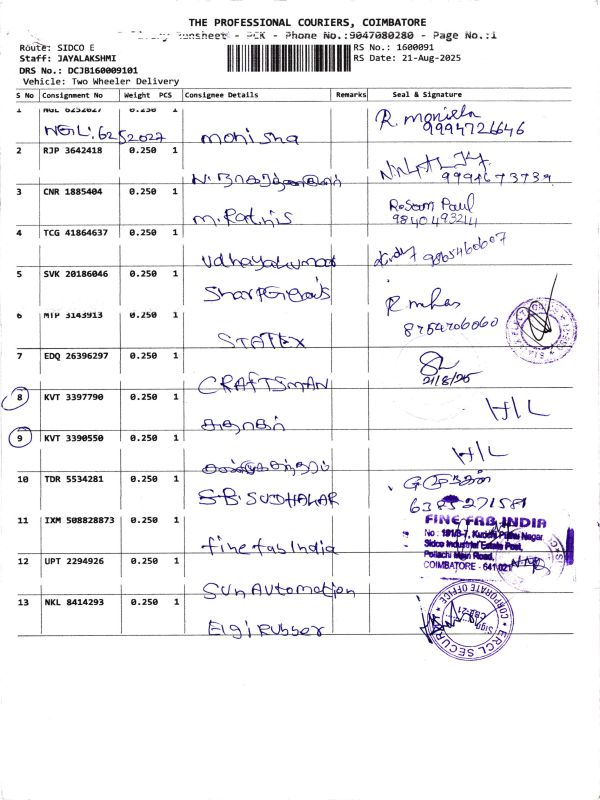 THE PROFESSIONAL COURIERS, COIMBATORE
Delivery Runsheet - PCK - Phone No.:9047080280 - Page No.:1
Route: SIDCO E
RS No.: 1600091
Staff: JAYALAKSHMI
RS Date: 21-Aug-2025
DRS No.: DCJB160009101
Vehicle: Two Wheeler Delivery
S No Consignment No Weight PCS Consignee Details Remarks Seal & Signature
1 NGL 6252027 0.250 1
NGL: 6252027 monisha
9994726646
2 RJP 3642418 0.250 1
3 CNR 1885404 0.250 1
Paul
9840493211
4 TCG 41864637 0.250 1
Udhayakumar
9865460607
5 SVK 20186046 0.250 1
6 MTP 3143913 0.250 1
8754706060
STATEX
7 EDQ 26396297 0.250 1
21/8/25
CRAFTSMAN
8 KVT 3397790 0.250 1
H/L
9 KVT 3390550 0.250 1
H/L
10 TDR 5534281 0.250 1
6385271581
S.B. SUDHAKAR
11 IXM 508828873 0.250 1
FINE FAB INDIA
Sidco Industrial Estate Post,
Pollachi Main Road,
COIMBATORE - 641 021
fine fab India
12 UPT 2294926 0.250 1
Sun Automation
13 NKL 8414293 0.250 1
CORPORATE OFFICE
Elgi Rubber